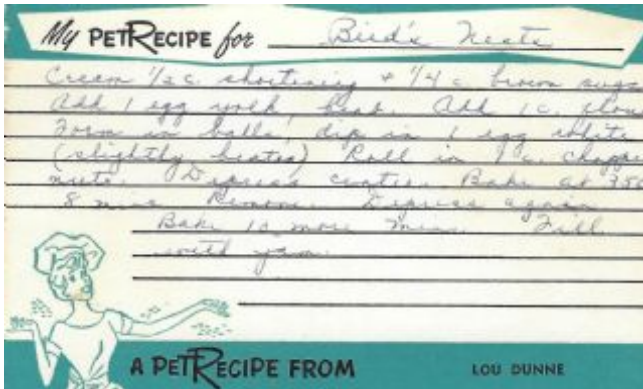 My PET RECIPE for Bird's Nests
Cream 1/2 c. shortening + 1/4 c brown suga
Add 1 egg yolk, beat. Add 1 c. flou
Form in balls, dip in 1 egg white
(slightly beaten) Roll in 1 c. chopp
nuts. Depress center. Bake at 350
8 min. Remove. Depress again
Bake 10 more min. Fill
with jam.
A PET RECIPE FROM LOU DUNNE